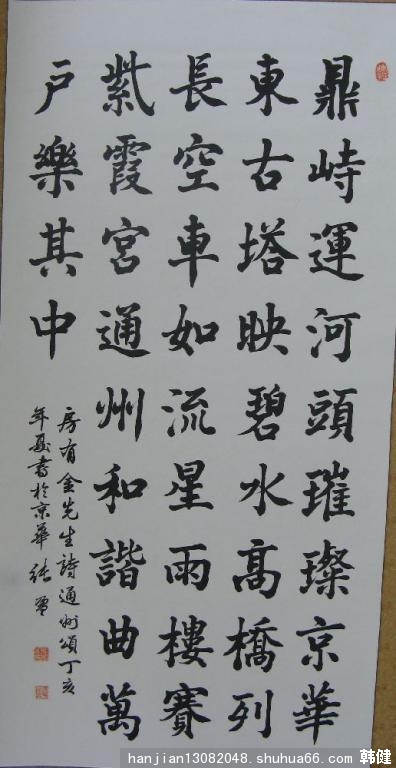 鼎峙運河頭璀璨京華
東古塔映碧水高橋列
長空車如流星雨樓賽
紫霞宮通州和諧曲萬
戶樂其中
房有金先生詩通州頌丁亥
年夏書於京華
hanjian13082048. shuhua66. com 韩健